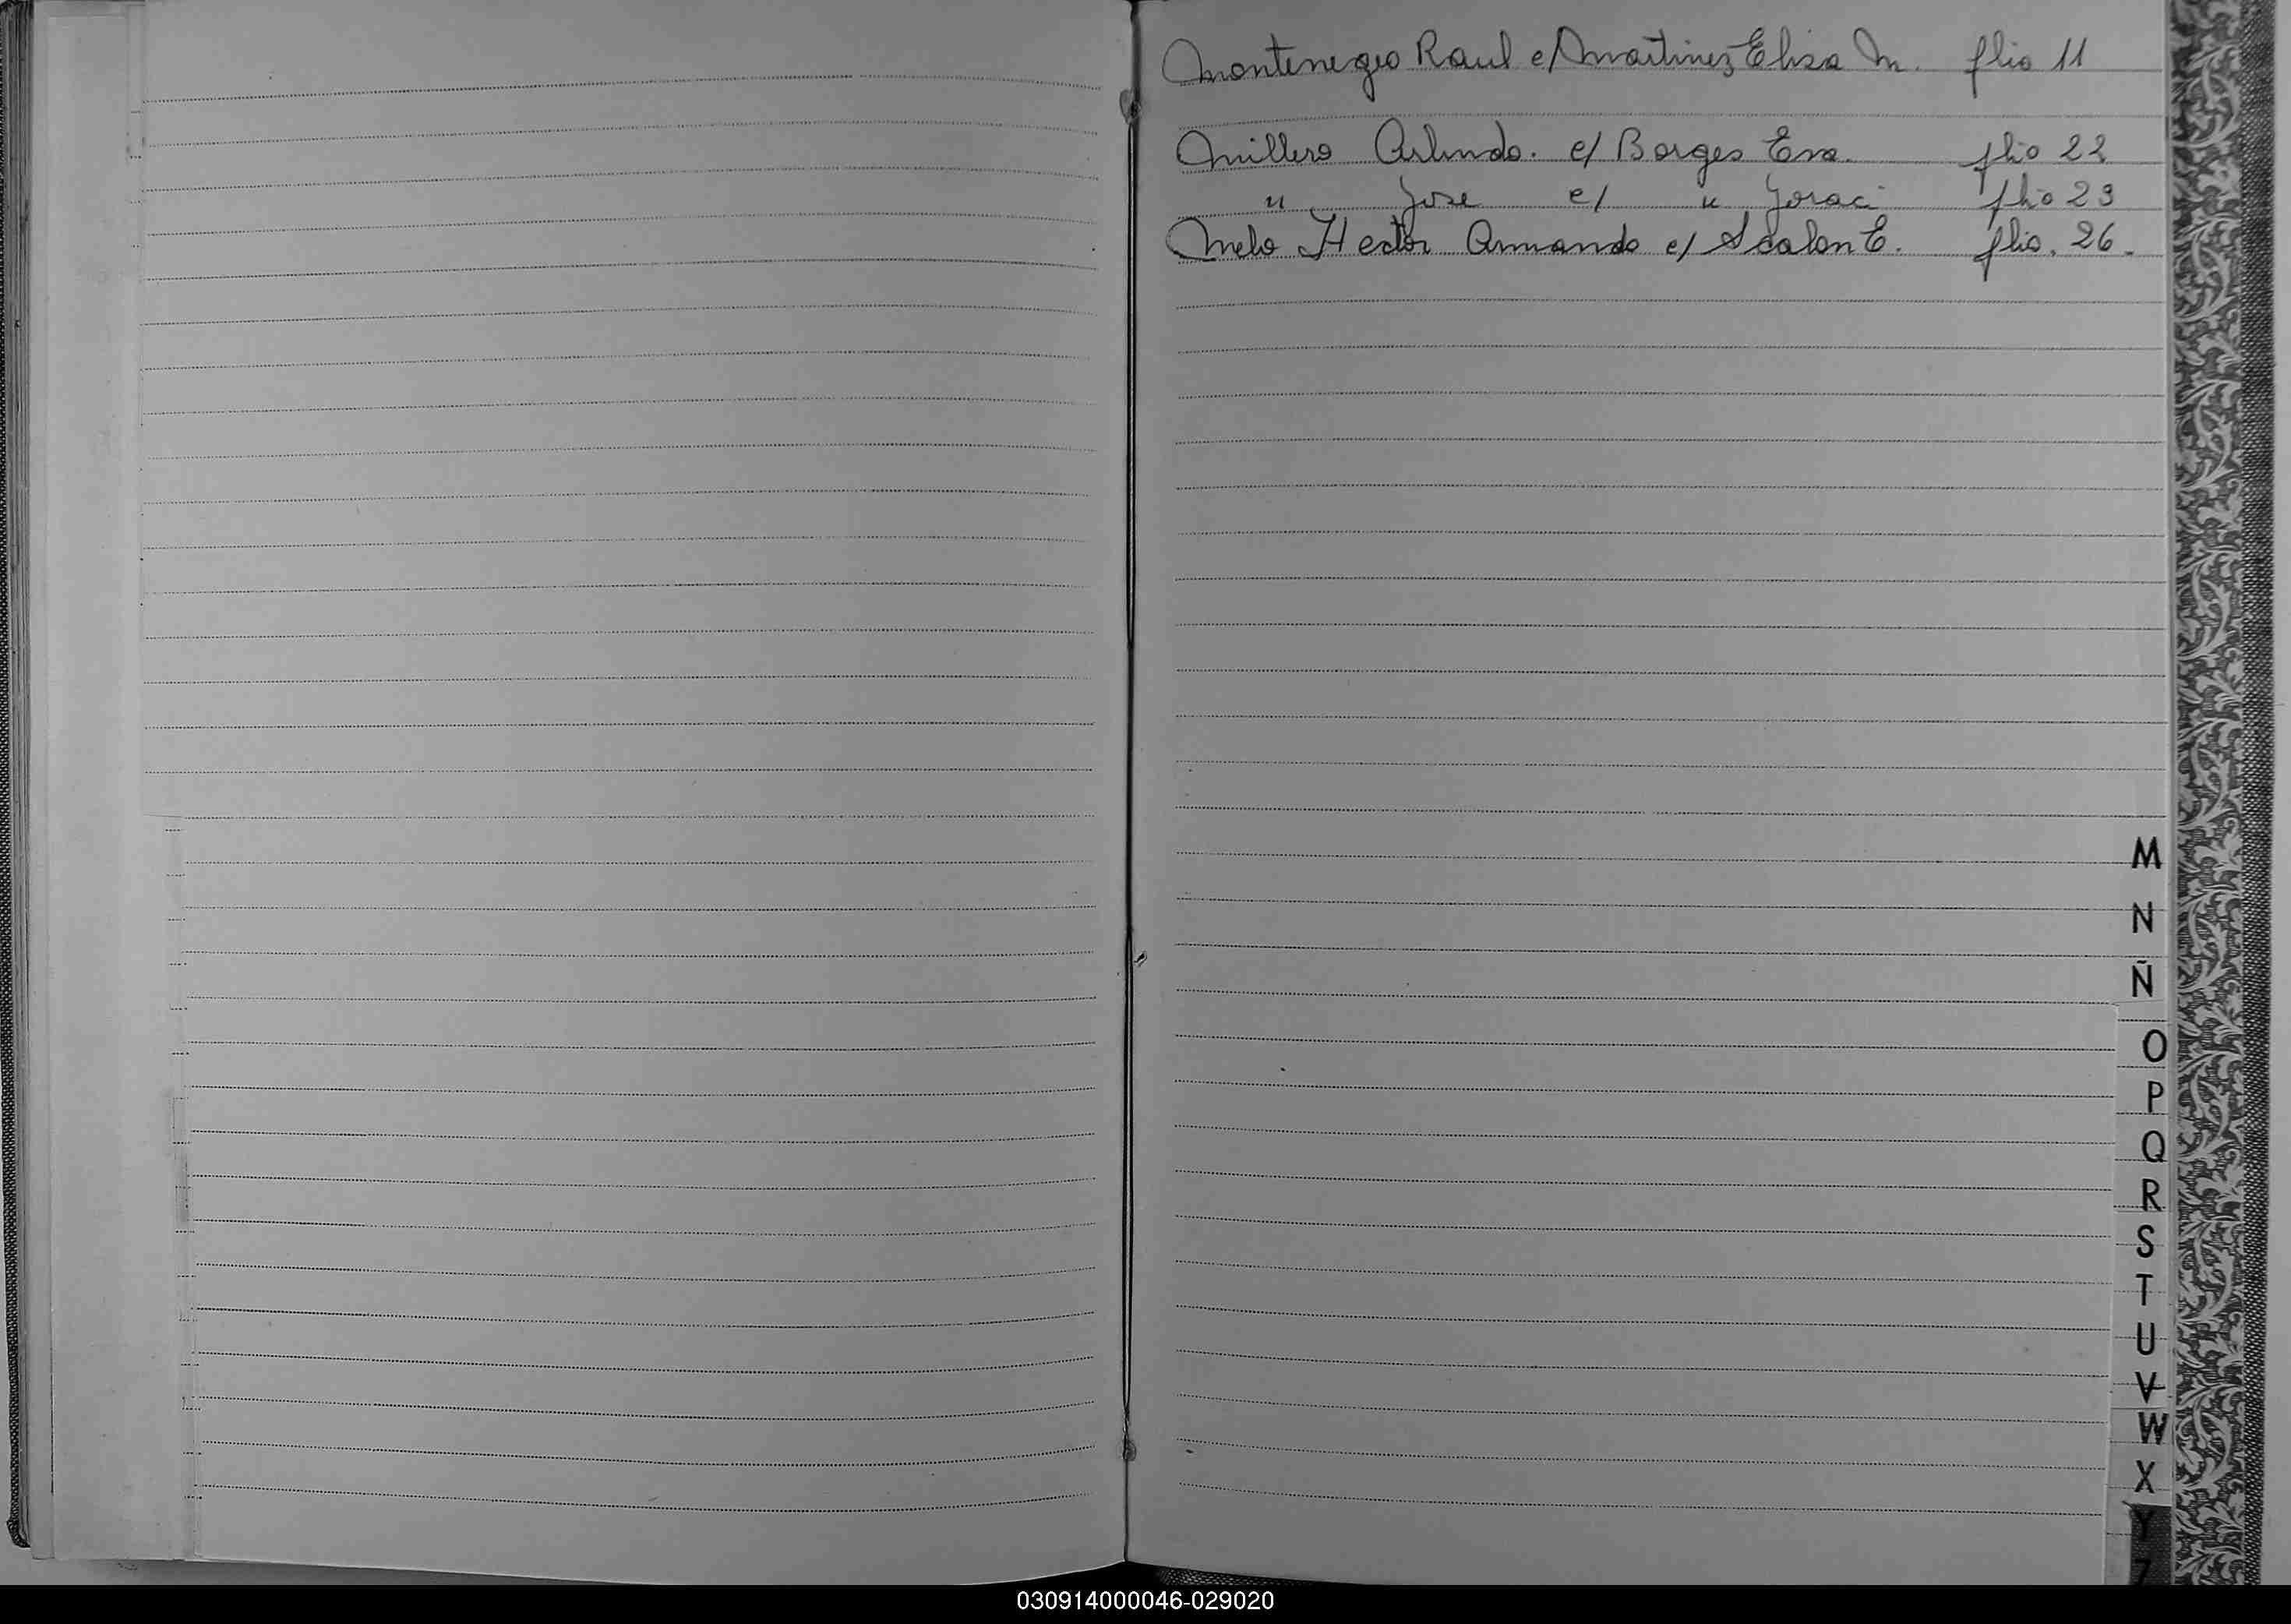 Montenegro Raul c/ Martinez Elisa M. flio 11
Millero Arlindo. c/ Borges Eva. flio 22
" Jose c/ " Joraci flio 23
Melo Hector Armando c/ Scalon E. flio. 26.
M
N
Ñ
O
P
Q
R
S
T
U
V
W
X
Y
Z
030914000046-029020